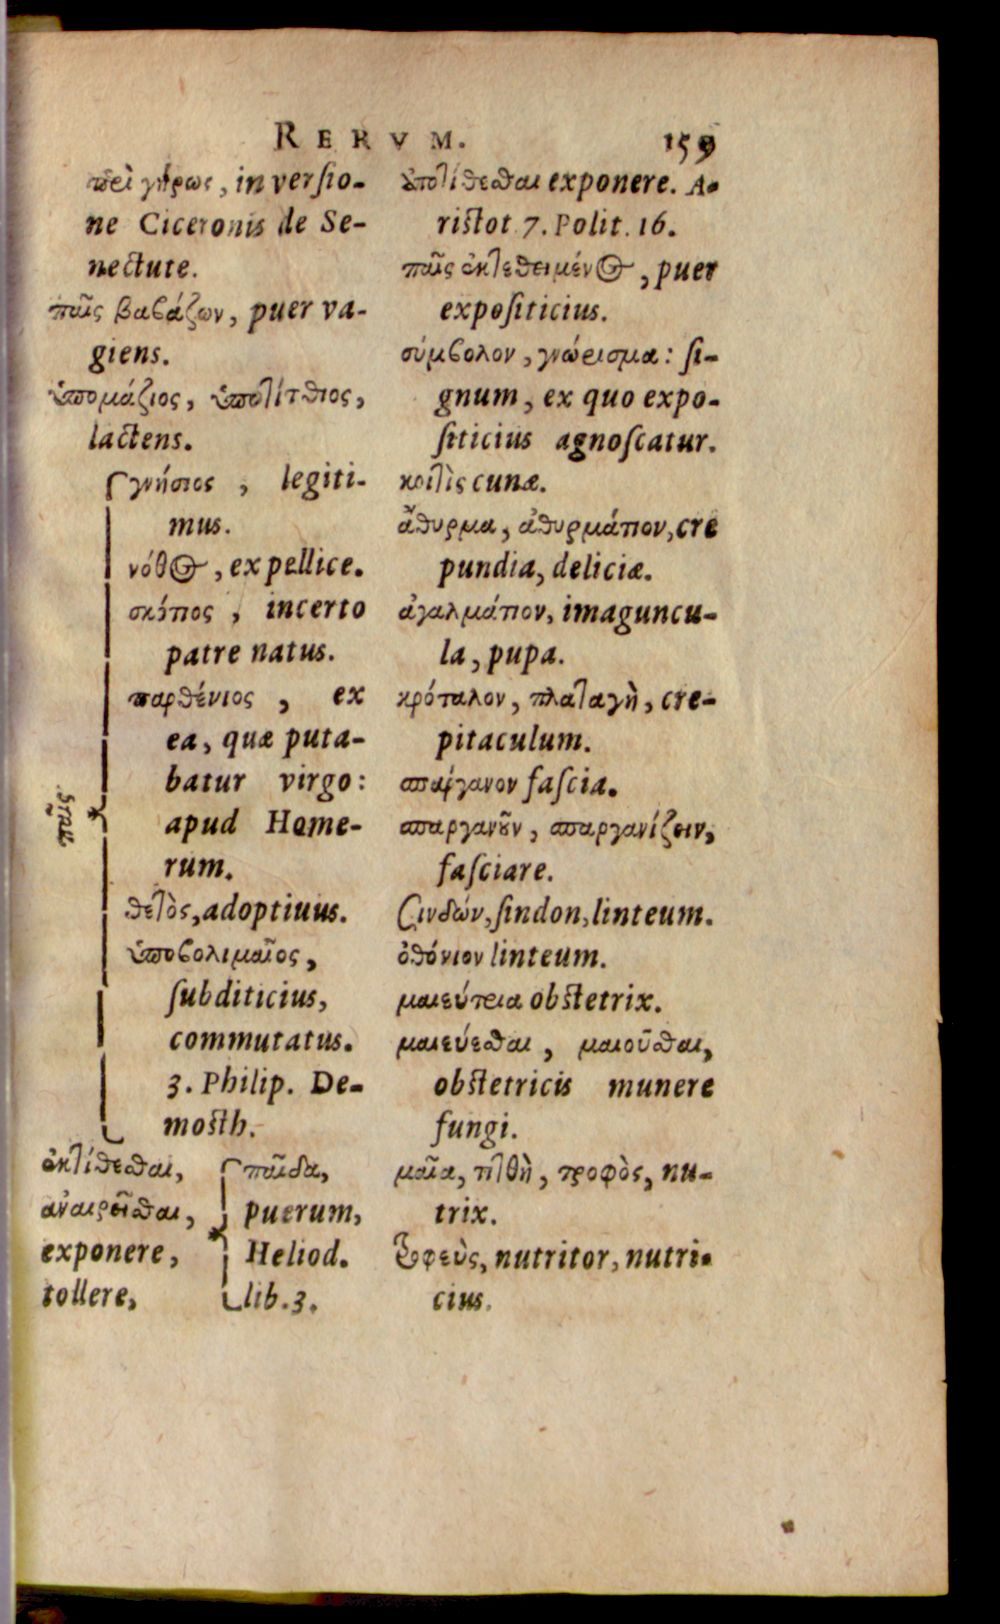 RERVM. 159
περὶ γήρως, in versio-
ne Ciceronis de Se-
nectute.
παῖς βαβάζων, puer va-
giens.
ὑπομάζιος, ὑποτίτθιος,
lactens.
παῖς
γνήσιος, legiti-
mus.
νόθος, ex pellice.
σκότιος, incerto
patre natus.
παρθένιος, ex
ea, quæ puta-
batur virgo:
apud Home-
rum.
θετὸς, adoptiuus.
ὑποβολιμαῖος,
subditicius,
commutatus.
3. Philip. De-
mosth.
ἐκτίθεσθαι,
ἀναιρεῖσθαι,
exponere,
tollere,
παῖδα,
puerum,
Heliod.
lib. 3.
ἀποτίθεσθαι exponere. A-
ristot 7. Polit. 16.
παῖς ἐκτεθειμένος, puer
expositicius.
σύμβολον, γνώρισμα: si-
gnum, ex quo expo-
siticius agnoscatur.
κοιτὶς cunæ.
ἄθυρμα, ἀθυρμάτιον, cre
pundia, deliciæ.
ἀγαλμάτιον, imaguncu-
la, pupa.
κρόταλον, πλαταγὴ, cre-
pitaculum.
σπάργανον fascia.
σπαργανοῦν, σπαργανίζειν,
fasciare.
σινδών, sindon, linteum.
ὀθόνιον linteum.
μαιεύτρια obstetrix.
μαιεύεσθαι, μαιοῦσθαι,
obstetricis munere
fungi.
μαῖα, τιτθὴ, τροφὸς, nu-
trix.
τροφεὺς, nutritor, nutri-
cius.